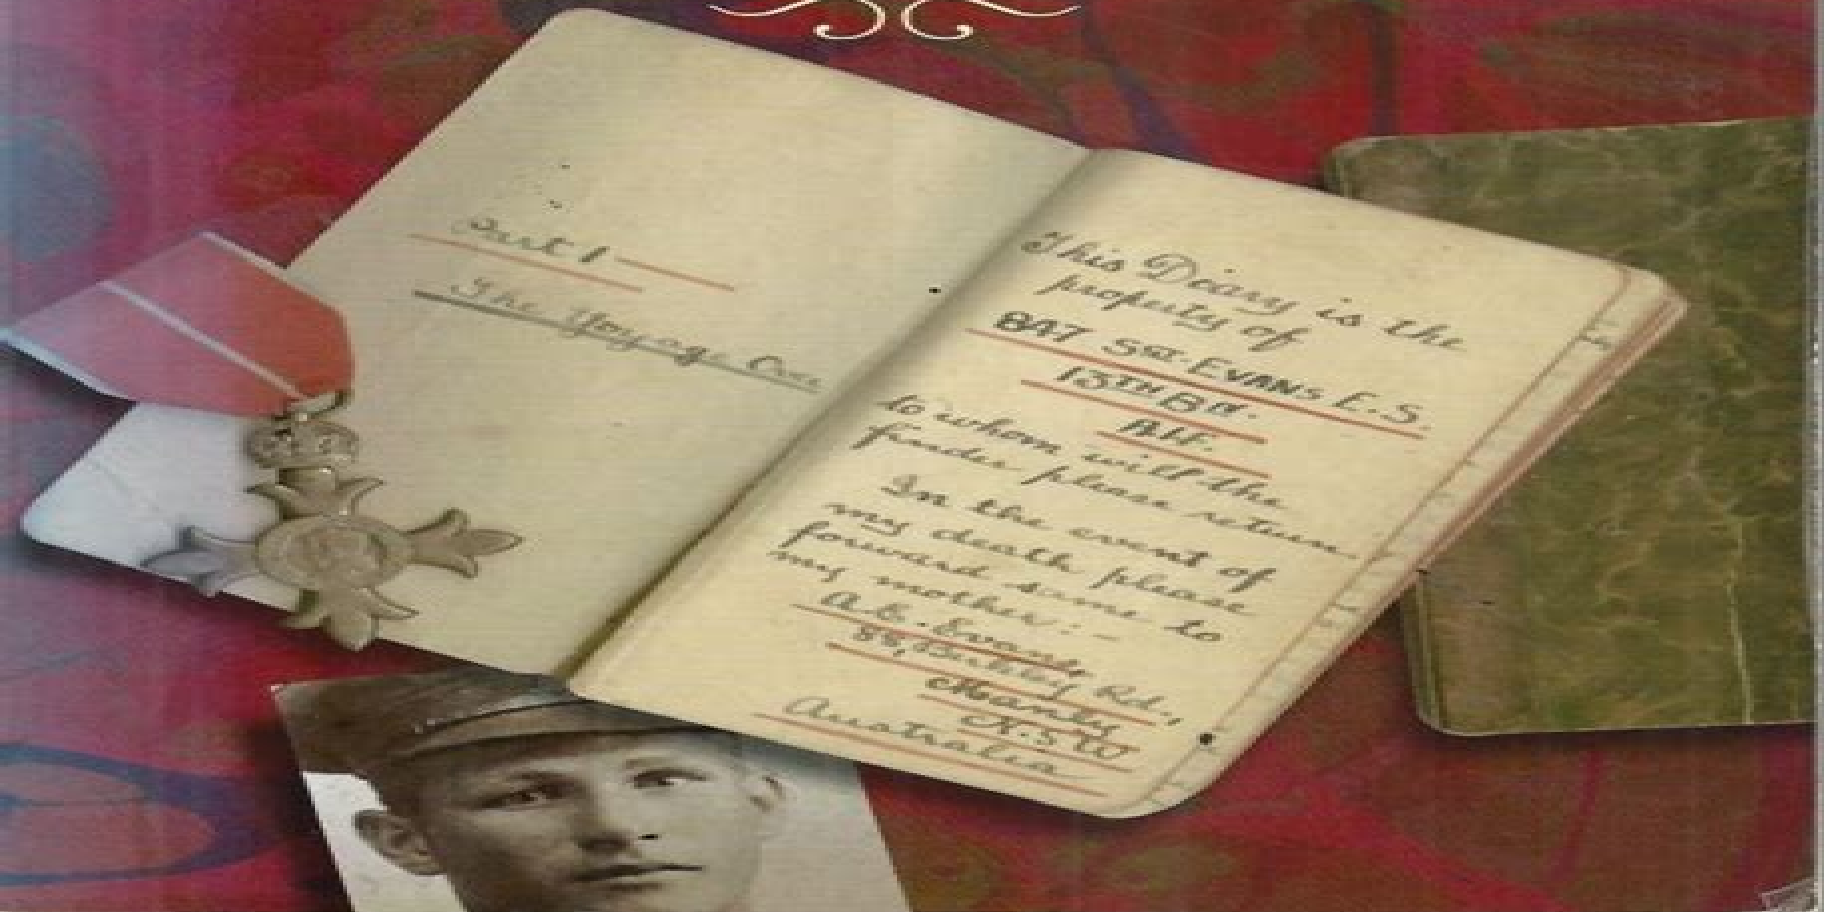 Part 1
The Voyage Over
This Diary is the
property of
847 Sgt. EVANS E.S.
13TH Bn.
A.I.F.
to whom will the
finder please return.
In the event of
my death please
forward same to
my mother:-
A.E. Evans,
Rd.,
Manly
N.S.W
Australia